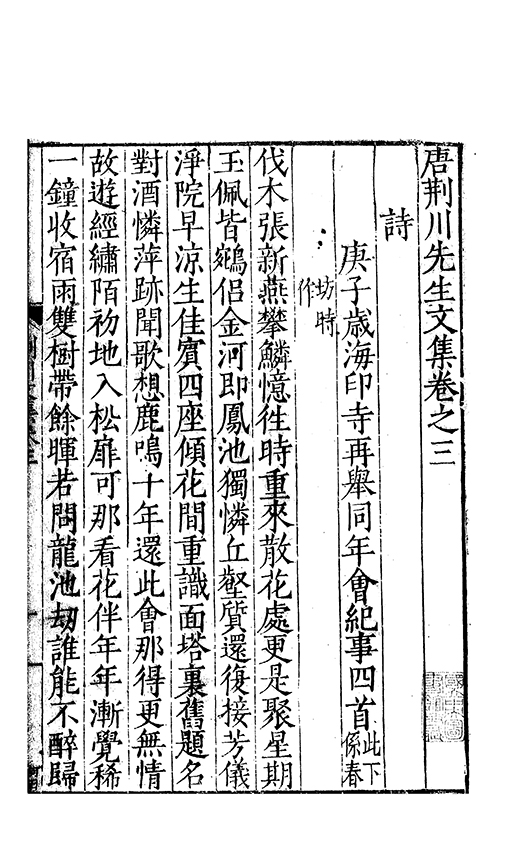 唐荆川先生文集卷之三
詩
庚子歲海印寺再舉同年會紀事四首此下係春
坊時作
伐木張新燕攀鱗憶徃時重來散花處更是聚星期
玉佩皆鵷侶金河即鳳池獨憐丘壑質還復接芳儀
淨院早凉生佳賓四座傾花間重識面塔裏舊題名
對酒憐萍跡聞歌想鹿鳴十年還此會那得更無情
故遊經繡陌初地入松扉可那看花伴年年漸覺稀
一鐘收宿雨雙樹帶餘暉若問龍池劫誰能不醉歸